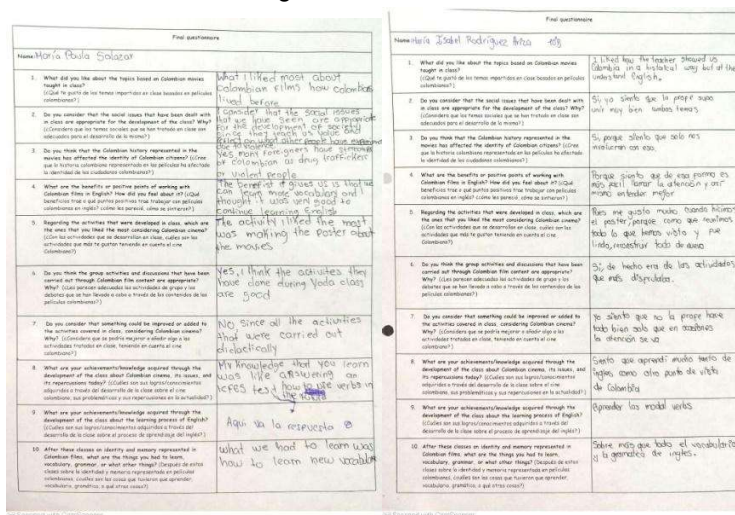 Final questionnaire
Name: María Paula Salazar
1. What did you like about the topics based on Colombian movies
taught in class?
(¿Qué te gustó de los temas impartidos en clase basados en películas
colombianas?)
What I liked most about
colombian films how colombians
lived before
2. Do you consider that the social issues that have been dealt with
in class are appropriate for the development of the class? Why?
(¿Considera que los temas sociales que se han tratado en clase son
adecuados para el desarrollo de la misma?)
I consider that the social issues
that we have seen are appropriate
for the development of society
since that teach us value and
reflect how what other people have
due to violence
3. Do you think that the Colombian history represented in the
movies has affected the identity of Colombian citizens? (¿Crees
que la historia colombiana representada en las películas ha afectado
la identidad de los ciudadanos colombianos?)
Yes, many foreigners have
of colombian as drug trafficker
or violent people
4. What are the benefits or positive points of working with
Colombian films in English? How did you feel about it? (¿Qué
beneficios trae o qué puntos positivos trae trabajar con películas
colombianas en inglés? ¿cómo te pareció, cómo se sintieron?)
The benefist it gives us is that we
can learn more vocabulary and
thought it was very good to
continue learning English
5. Regarding the activities that were developed in class, which are
the ones that you liked the most considering Colombian cinema?
(¿Con las actividades que se desarrollan en clase, cuáles son las
actividades que más te gustan teniendo en cuenta el cine
colombiano?)
The activity i liked the most
was making the poster about
the movies
6. Do you think the group activities and discussions that have been
carried out through Colombian film content are appropriate?
Why? (¿Les parecen adecuadas las actividades de grupo y los
debates que se han llevado a cabo a través de los contenidos de las
películas colombianas?)
Yes, I think the activities they
have done during Yoda class
are good
7. Do you consider that something could be improved or added to
the activities covered in class, considering Colombian cinema?
Why? (¿Considera que se podría mejorar o añadir algo a las
actividades tratadas en clase, teniendo en cuenta el cine
colombiano?)
No since all the activities
that were carried out
didactically
8. What are your achievements/knowledge acquired through the
development of the class about Colombian cinema, its issues, and
its repercussions today? (¿Cuáles son sus logros/conocimientos
adquiridos a través del desarrollo de la clase sobre el cine
colombiano, sus problemáticas y sus repercusiones en la actualidad?)
My knowledge that you learn
was like answering an
ICFES test how to use verbs in
the
9. What are your achievements/knowledge acquired through the
development of the class about the learning process of English?
(¿Cuáles son sus logros/conocimientos adquiridos a través del
desarrollo de la clase sobre el proceso de aprendizaje del inglés?)
Aqui va la respuesta
10. After these classes on identity and memory represented in
Colombian films, what are the things you had to learn,
vocabulary, grammar, or what other things? (Después de estas
clases sobre la identidad y memoria representada en películas
colombianas, ¿cuáles son las cosas que tuvieron que aprender,
vocabulario, gramática, o qué otras cosas?)
what we had to learn was
how to learn new vocabulary
Final questionnaire
Name: María Isabel Rodríguez Ariza
1. What did you like about the topics based on Colombian movies
taught in class?
(¿Qué te gustó de los temas impartidos en clase basados en películas
colombianas?)
I liked how the teacher showed us
Colombia in a historical way but at the
understand English.
2. Do you consider that the social issues that have been dealt with
in class are appropriate for the development of the class? Why?
(¿Considera que los temas sociales que se han tratado en clase son
adecuados para el desarrollo de la misma?)
Si, yo siento que la profe supo
unir muy bien ambos temas.
3. Do you think that the Colombian history represented in the
movies has affected the identity of Colombian citizens? (¿Crees
que la historia colombiana representada en las películas ha afectado
la identidad de los ciudadanos colombianos?)
Si, porque siento que solo nos
involucran con eso.
4. What are the benefits or positive points of working with
Colombian films in English? How did you feel about it? (¿Qué
beneficios trae o qué puntos positivos trae trabajar con películas
colombianas en inglés? ¿cómo te pareció, cómo se sintieron?)
Porque siento que de esa forma es
más facil llamar la atención y asi
mismo entender mejor
5. Regarding the activities that were developed in class, which are
the ones that you liked the most considering Colombian cinema?
(¿Con las actividades que se desarrollan en clase, cuáles son las
actividades que más te gustan teniendo en cuenta el cine
colombiano?)
Pues me gusto mucho cuando hicimos
el poster, porque como que reunimos
todo lo que hemos visto y fue
lindo, mostrar todo de
6. Do you think the group activities and discussions that have been
carried out through Colombian film content are appropriate?
Why? (¿Les parecen adecuadas las actividades de grupo y los
debates que se han llevado a cabo a través de los contenidos de las
películas colombianas?)
Si, de hecho era de las actividades
que más disfrutaba.
7. Do you consider that something could be improved or added to
the activities covered in class, considering Colombian cinema?
Why? (¿Considera que se podría mejorar o añadir algo a las
actividades tratadas en clase, teniendo en cuenta el cine
colombiano?)
Yo siento que no la profe hace
todo bien solo que en ocasiones
la atención se va
8. What are your achievements/knowledge acquired through the
development of the class about Colombian cinema, its issues, and
its repercussions today? (¿Cuáles son sus logros/conocimientos
adquiridos a través del desarrollo de la clase sobre el cine
colombiano, sus problemáticas y sus repercusiones en la actualidad?)
Siento que aprendí mucho tanto de
ingles como otro punto de vista
de Colombia
9. What are your achievements/knowledge acquired through the
development of the class about the learning process of English?
(¿Cuáles son sus logros/conocimientos adquiridos a través del
desarrollo de la clase sobre el proceso de aprendizaje del inglés?)
Aprender los modal verbs
10. After these classes on identity and memory represented in
Colombian films, what are the things you had to learn,
vocabulary, grammar, or what other things? (Después de estas
clases sobre la identidad y memoria representada en películas
colombianas, ¿cuáles son las cosas que tuvieron que aprender,
vocabulario, gramática, o qué otras cosas?)
Sobre más que todo el vocabulario
y la gramatica de ingles.